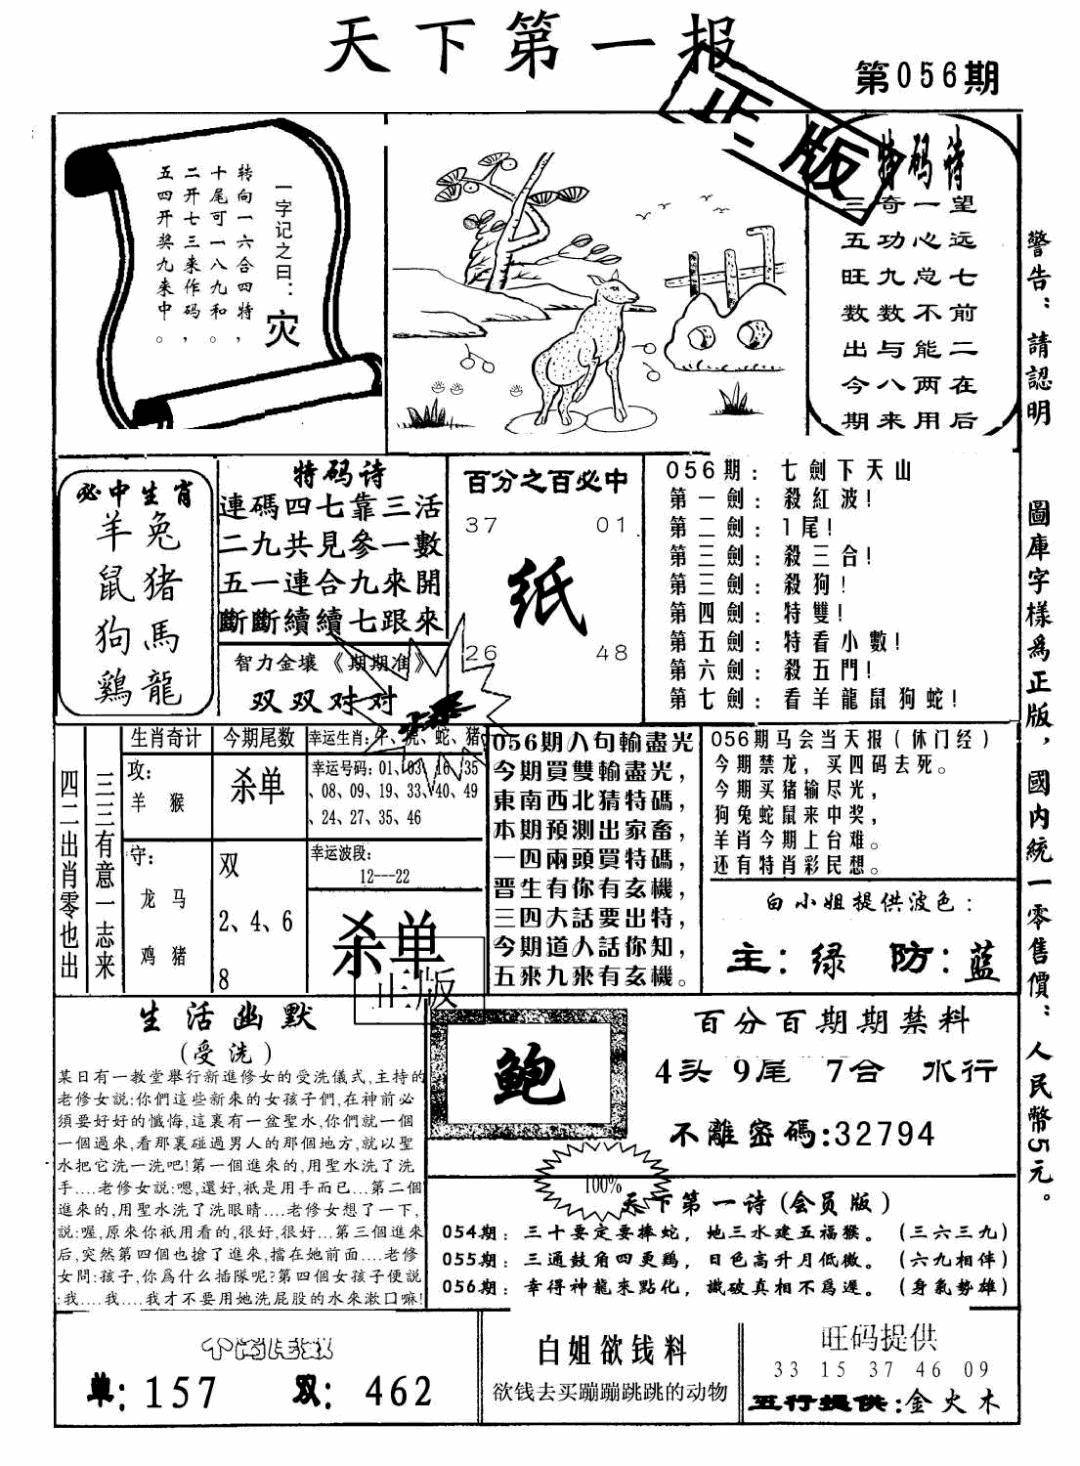 天下第一报
第056期
正版
一字记之曰：灾
转向一六合四特，
十尾可一八九和。
二开七三来作码，
五四开奖九来中。
特码诗
望远七前二在后
一心总不能两用
奇功九数与八来
三五旺数出今期
警告：請認明
圖庫字樣爲正版，國內統一零售價：人民幣5元。
必中生肖
羊兔
鼠猪
狗馬
鷄龍
特码诗
連碼四七靠三活
二九共見參一數
五一連合九來開
斷斷續續七跟来
智力金壤《期期准》
双双对对
百分之百必中
37 01
纸
26 48
056期：七劍下天山
第一劍：殺紅波！
第二劍：1尾！
第三劍：殺三合！
第三劍：殺狗！
第四劍：特雙！
第五劍：特看小數！
第六劍：殺五門！
第七劍：看羊龍鼠狗蛇！
三三三有意一志来
四二出肖零也出
生肖奇计
攻：
羊 猴
守：
龙 马
鸡 猪
今期尾数
杀单
双
2、4、6
8
幸运生肖：牛、虎、蛇、猪
幸运号码：01、03、16、35
、08、09、19、33、40、49
、24、27、35、46
幸运波段：
12---22
杀单
正版
056期八句輸盡光
今期買雙輸盡光，
東南西北猜特碼，
本期預測出家畜，
一四兩頭買特碼，
晋生有你有玄機，
三四大話要出特，
今期道人話你知，
五來九來有玄機。
056期马会当天报（休门经）
今期禁龙，买四码去死。
今期买猪输尽光，
狗兔蛇鼠来中奖，
羊肖今期上台难。
还有特肖彩民想。
白小姐提供波色：
主：绿 防：蓝
生活幽默
(受洗)
某日有一教堂舉行新進修女的受洗儀式,主持的
老修女説:你們這些新來的女孩子們,在神前必
須要好好的懺悔,這裏有一盆聖水,你們就一個
一個過來,看那裏碰過男人的那個地方,就以聖
水把它洗一洗吧!第一個進來的,用聖水洗了洗
手....老修女説:嗯,還好,衹是用手而已...第二個
進來的,用聖水洗了洗眼睛....老修女想了一下,
説:喔,原來你衹用看的,很好,很好...第三個進來
后,突然第四個也搶了進來,擋在她前面....老修
女問:孩子,你爲什么插隊呢?第四個女孩子便説
:我....我....我才不要用她洗屁股的水來漱口嘛!
鲍
百分百期期禁料
4头 9尾 7合 水行
不離密碼:32794
100%
天下第一诗(会员版)
054期：三十要定要捧蛇，地三水建五福猴。（三六三九）
055期：三通鼓角四更鷄，日色高升月低微。（六九相伴）
056期：幸得神龍来點化，識破真相不爲遲。（身氣勢雄）
单：157 双：462
白姐欲钱料
欲钱去买蹦蹦跳跳的动物
旺码提供
33 15 37 46 09
五行提供:金火木